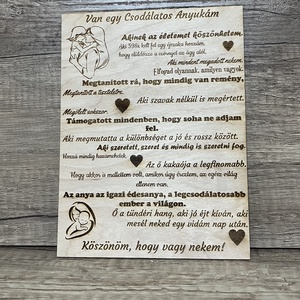 Van egy Csodálatos Anyukám
Akinek az életemet köszönhetem.
Aki Szíve kelt fel egy éjszaka hosszán,
hogy elűldözze a szörnyet az ágy alól.
Aki mindent megadott nekem.
Elfogad olyannak, amilyen vagyok.
Megtanított rá, hogy mindig van remény.
Megtanított a tiszteletre.
Aki szavak nélkül is megértett.
Megölelt sokszor.
Támogatott mindenben, hogy soha ne adjam
fel.
Aki megmutatta a különbséget a jó és rossz között.
Aki szeretett, szeret és mindig is szeretni fog.
Hozzá mindig hazamehetek.
Az ő kakaója a legfinomabb.
Hogy akkor is mellettem volt, amikor úgy éreztem, az egész világ
ellenem van.
Az anya az igazi édesanya, a legcsodálatosabb
ember a világon.
Ő a tündéri hang, aki jó éjt kíván, aki
mesél neked egy vidám nap után.
Köszönöm, hogy vagy nekem!